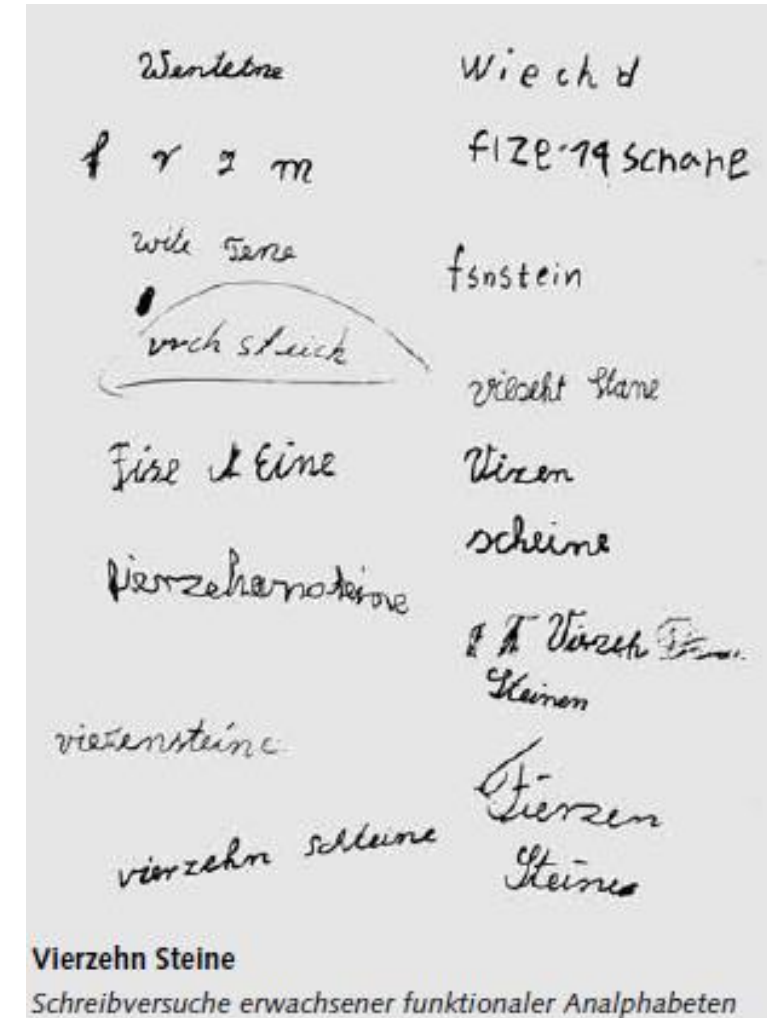 Wenletne
f r z m
wile Tene
vrch stuick
Fise st Eine
fierzehansteine
vierensteine
vierzehn schleine
Wiechd
fize-14 schane
fsnstein
vilseht Stane
Vizen
scheine
Virzeh
Steinen
Fierzen
Steine
Vierzehn Steine
Schreibversuche erwachsener funktionaler Analphabeten